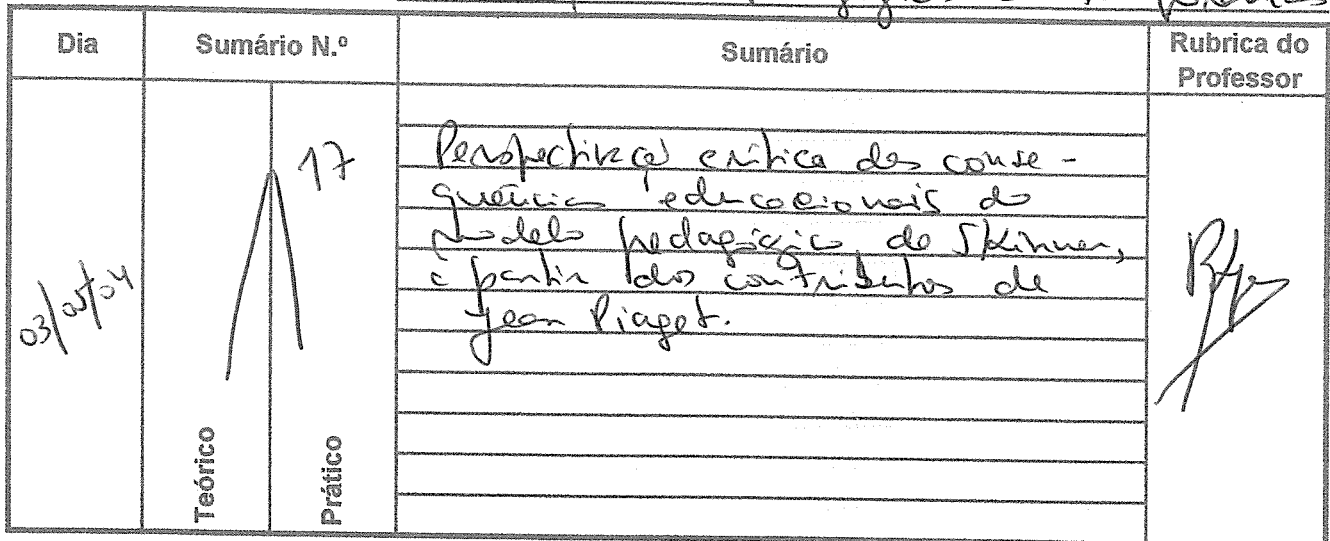 Dia Sumário N.º Sumário Rubrica do Professor
03/05/04
17
Perspectiva crítica das conse-
quências educacionais do
modelo pedagógico de Skinner,
a partir dos contributos de
Jean Piaget.
Teórico
Prático